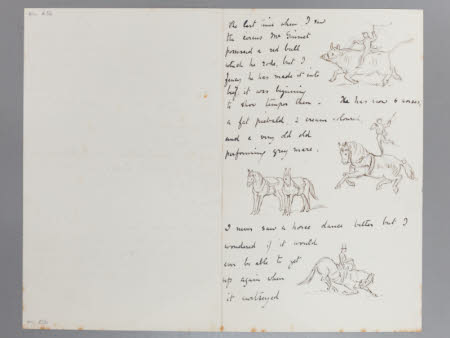 the last time when I saw
the circus Mr Ginnet
possessed a red bull
which he rode, but I
fancy he has made it into
beef, it was beginning
to show temper then. He has now 4 horses,
a fat piebald 2 cream coloured
and a very old old
performing grey mare.
I never saw a horse dance better but I
wondered if it would
ever be able to get
up again when
it curtseyed